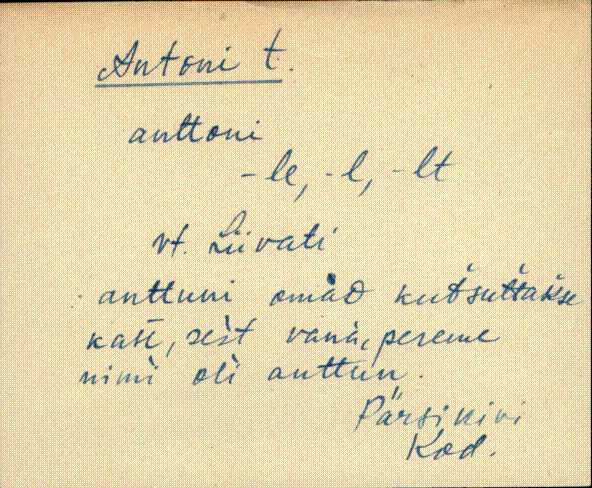 Antoni t.
anttoni
-le, -l, -lt
vt. Liivati
anttuni omàd kutsuttakse
katt, sest vanà, pereme
nimi oli anttun.
Pärsikivi
Kod.